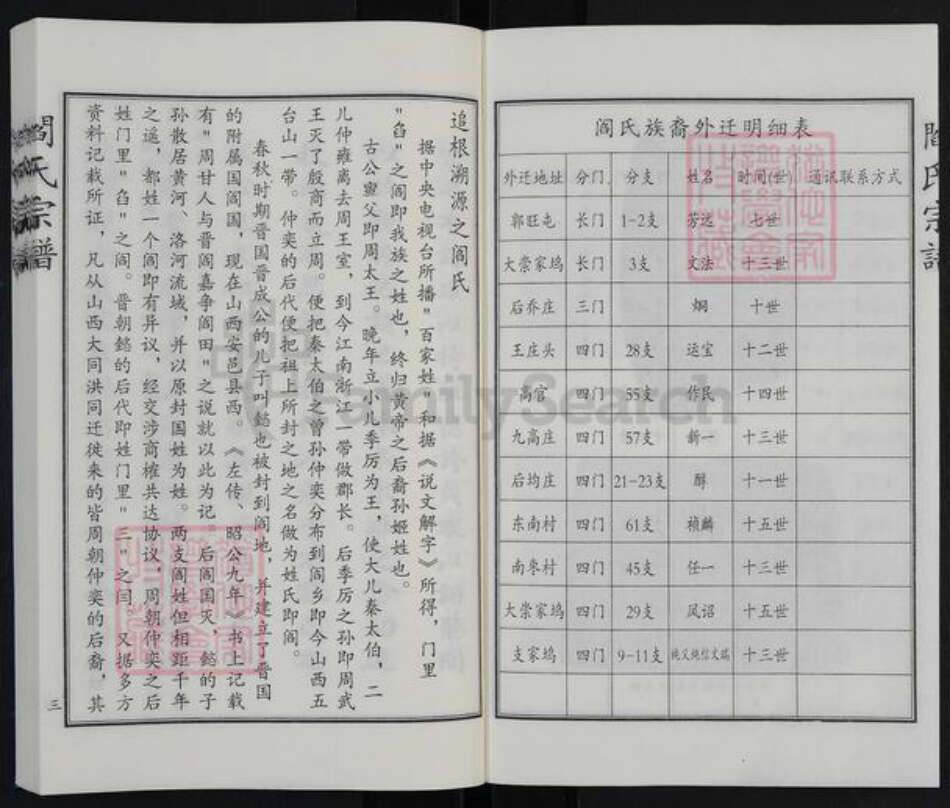 閻氏宗譜
阎氏族裔外迁明细表
外迁地址 分门 分支 姓名 时间(世) 通讯联系方式
郭旺屯 长门 1-2支 芳远 七世
大崇家坞 长门 3支 文法 十三世
后乔庄 三门 炯 十世
王庄头 四门 28支 运宝 十二世
高官 四门 55支 作民 十四世
九高庄 四门 57支 新一 十三世
后均庄 四门 21-23支 醇 十一世
东南村 四门 61支 祯麟 十五世
南枣村 四门 45支 任一 十三世
大崇家坞 四门 29支 凤诏 十五世
支家坞 四门 9-11支 十三世
追根溯源之阎氏
据中央电视台所播"百家姓"和据《说文解字》所得，门里
"臽"之阎即我族之姓也，终归黄帝之后裔孙姬姓也。
古公亶父即周太王。晚年立小儿季厉为王，使大儿秦太伯，二
儿仲雍离去周王室，到今江南浙江一带做郡长。后季厉之孙即周武
王灭了殷商而立周。便把秦太伯之曾孙仲奕分布到阎乡即今山西五
台山一带。仲奕的后代便把祖上所封之地之名做为姓氏即阎。
春秋时期晋国晋成公的儿子叫懿也被封到阎地，并建立了晋国
的附属国阎国，现在山西安邑县西。《左传、昭公九年》书上记载
有"周甘人与晋阎嘉争阎田"之说就以此为记。后阎国灭，懿的子
孙散居黄河、洛河流域，并以原封国姓为姓。两支阎姓但相距千年
之遥，都姓一个阎即有异议，经交涉商榷共达协议，周朝仲奕之后
姓门里"臽"之阎。晋朝懿的后代即姓门里"三"之闫。又据多方
资料记载所证，凡从山西大同洪同迁徙来的皆周朝仲奕的后裔，其
三
閻氏宗譜
FamilySearch